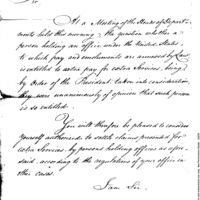 Sir,
At a Meeting of the Heads of Depart-
ments held this morning, the question whether a
person holding an office under the United States
to which pay and emoluments are annexed by Law
is entitled to extra pay for extra Services, being
by Order of the President taken into consideration,
they were unanimously of opinion that such person
is so entitled.
You will therefore be pleased to consider
yourself authorized to settle claims presented for
extra Services by persons holding offices as afore-
said according to the regulations of your office in
other cases.
I am Sir